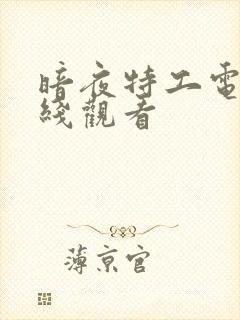 暗夜特工電
綫觀看
薄京官